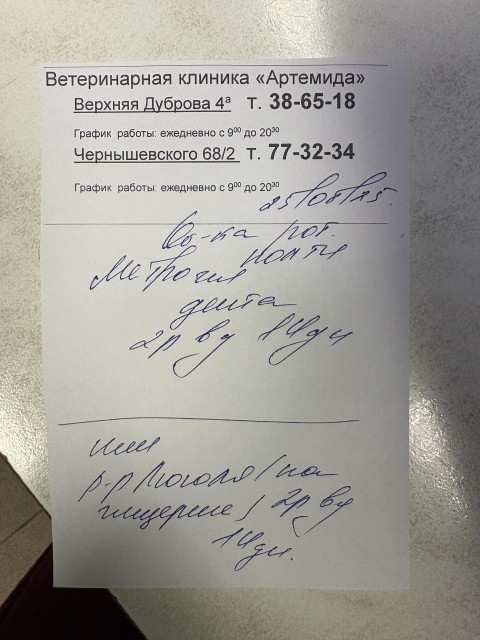 Ветеринарная клиника «Артемида»
Верхняя Дуброва 4ᵃ т. 38-65-18
График работы: ежедневно с 9⁰⁰ до 20³⁰
Чернышевского 68/2 т. 77-32-34
График работы: ежедневно с 9⁰⁰ до 20³⁰
25/08/25.
Об-ка рот. полости
Метрогил
дента
2р в д 14дн
или
р-р Люголя (на
глицерине) 2р в д
14дн.